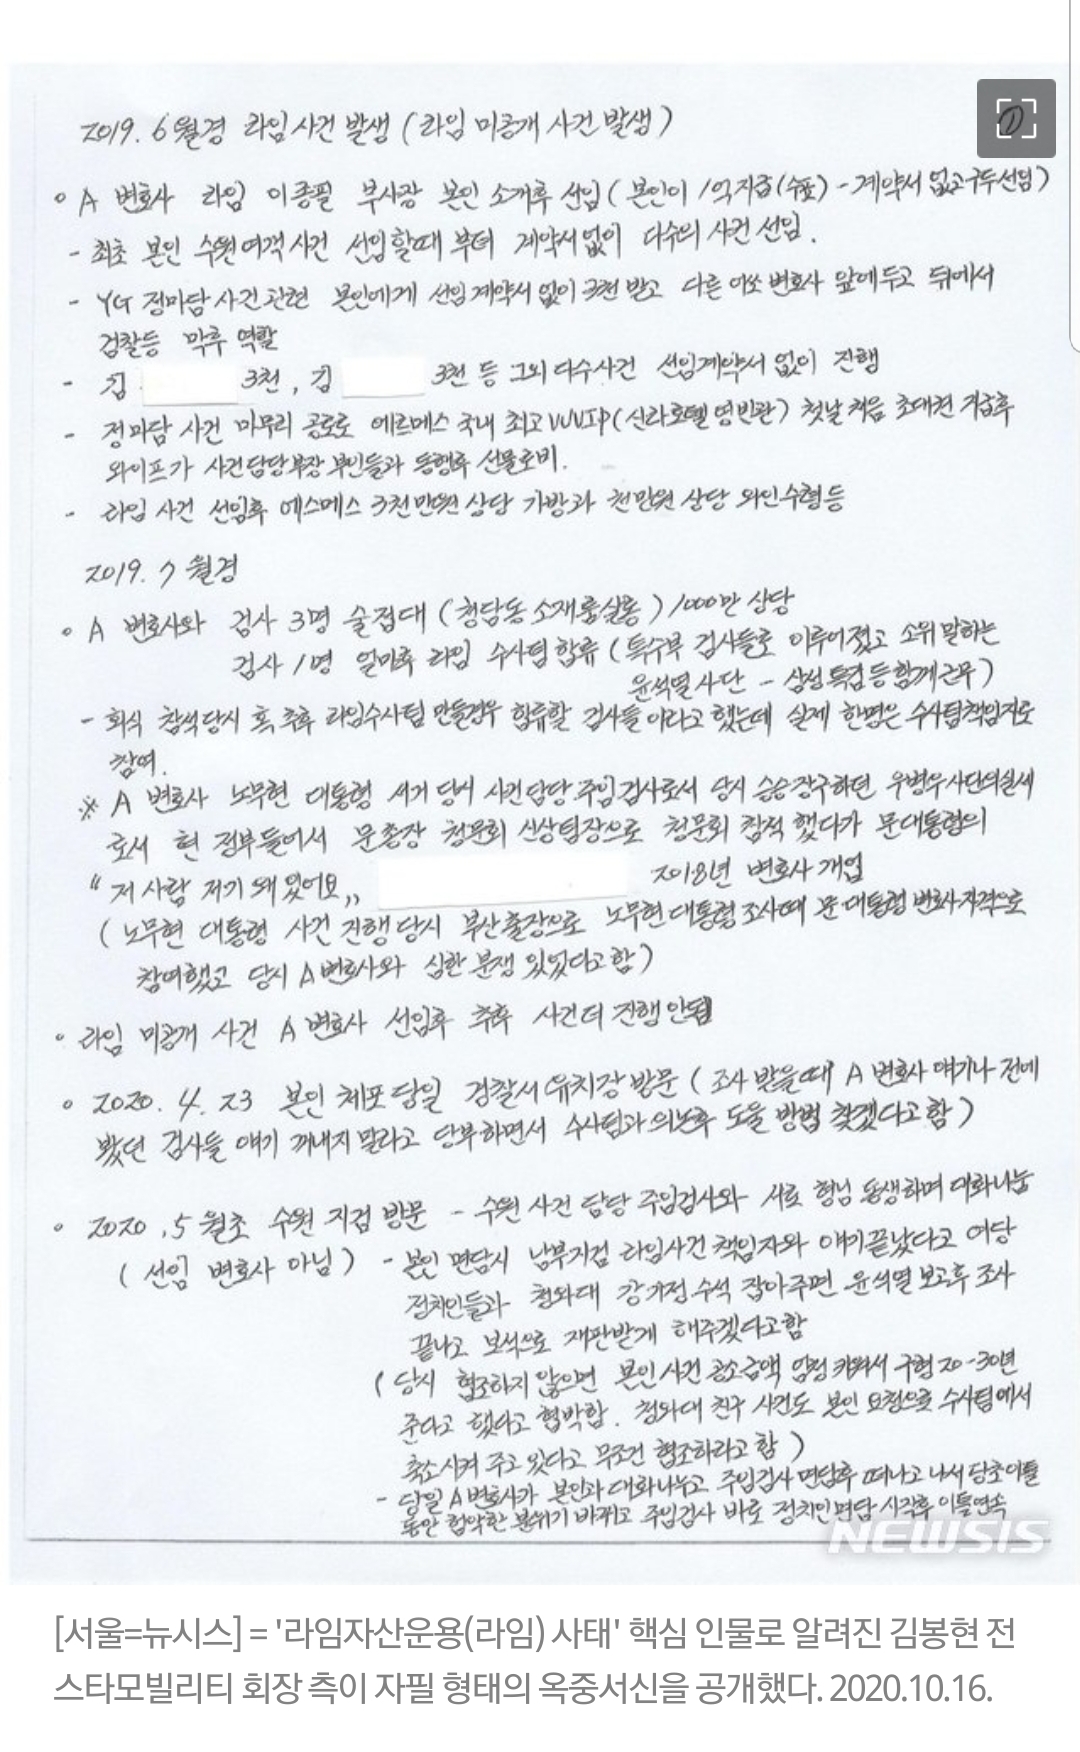 ①
2019. 6월경 라임사건 발생 (라임 미공개 사건 발생)
○ A 변호사 라임 이종필 부사장 본인 소개후 선임 (본인이 1억지급(수표) - 계약서 없고 구두선임)
- 최초 본인 수원여객 사건 선임할때 부터 계약서없이 다수의 사건 선임.
- YG 정마담사건관련 본인에게 선임계약서 없이 3천 받고 다른 여쏘 변호사 앞에두고 뒤에서
검찰등 막후 역할
- 김 3천, 김 3천 등 그외 다수사건 선임계약서 없이 진행
- 정마담 사건 마무리 공로로 에르메스 국내 최고 VVVIP(신라호텔 영빈관) 첫날 처음 초대권 지급후
와이프가 사건담당부장 부인들과 동행후 선물로비.
- 라임 사건 선임후 에스메스 3천만원 상당 가방과 천만원 상당 와인수령등
2019. 7월경
○ A 변호사와 검사 3명 술접대 (청담동 소재룸살롱) 1000만 상당
검사 1명 얼마후 라임 수사팀 합류 (특수부 검사들로 이루어졌고 소위 말하는
윤석열사단 - 삼성특검등 함께근무)
- 회식 참석당시 혹 추후 라임수사팀 만들경우 합류할 검사들 이라고 했는데 실제 한명은 수사팀책임자로
참여.
※ A 변호사 노무현 대통령 서거 당시 사건담당 주임검사로서 당시 승승장구하던 우병우사단의실세
로서 현 정부들어서 문총장 청문회 신상팀장으로 청문회 참석 했다가 문대통령의
"저 사람 저기 왜있어요" 2018년 변호사 개업
(노무현 대통령 사건 진행당시 부산출장으로 노무현대통령 조사때 문대통령 변호사자격으로
참여했고 당시 A변호사와 심한 분쟁 있었다고함)
○ 라임 미공개 사건 A변호사 선임후 추후 사건더 진행안됨
○ 2020. 4. 23 본인 체포당일 경찰서 유치장 방문 (조사 받을때 A변호사 얘기나 전에
봤던 검사들 얘기 꺼내지 말라고 당부하면서 수사팀과 의논후 도울 방법 찾겠다고함)
○ 2020. 5월초 수원 지검 방문 - 수원 사건 담당 주임검사와 서로 형님 동생하며 대화나눔
(선임 변호사 아님) - 본인 면담시 남부지검 라임사건 책임자와 얘기끝났다고 여당
정치인들과 청와대 강기정 수석 잡아주면 윤석열 보고후 조사
끝나고 보석으로 재판받게 해주겠다고함
(당시 협조하지 않으면 본인 사건 공소금액 엄청 키워서 구형 20-30년
준다고 했다고 협박함. 청와대 친구 사건도 본인 요청으로 수사팀에서
축소시켜 주고 있다고 무조건 협조하라고 함)
- 당일 A변호사가 본인과 대화나누고 주임검사 면담후 떠나고 나서 당초이틀
동안 험악한 분위기 바뀌고 주임검사 바로 정치인면담 시작후 이틀연속
NEWSIS
[서울=뉴시스] = '라임자산운용(라임) 사태' 핵심 인물로 알려진 김봉현 전
스타모빌리티 회장 측이 자필 형태의 옥중서신을 공개했다. 2020.10.16.